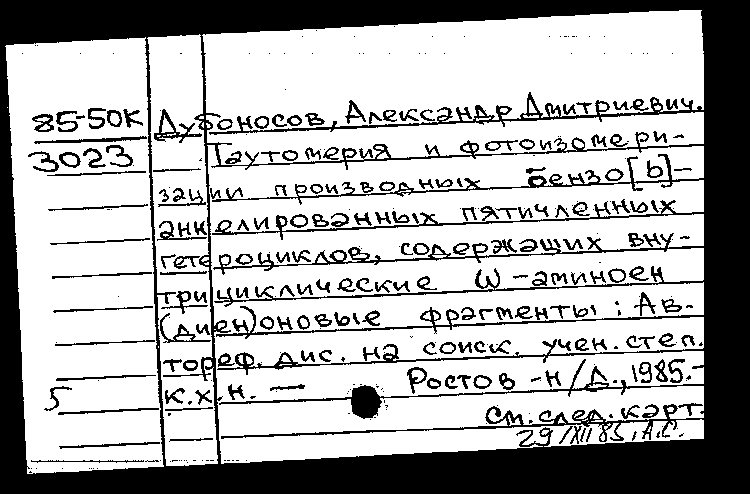 85-50К Дубоносов, Александр Дмитриевич.
3023 Таутомерия и фотоизомери-
зации производных бензо[b]-
аннелированных пятичленных
гетероциклов, содержащих вну-
трициклические ω-аминоен
(диен)оновые фрагменты: Ав-
тореф. дис. на соиск. учен. степ.
5 к.х.н. — Ростов-н/Д., 1985.-
см. след. карт.
29/XII 85, А.С.